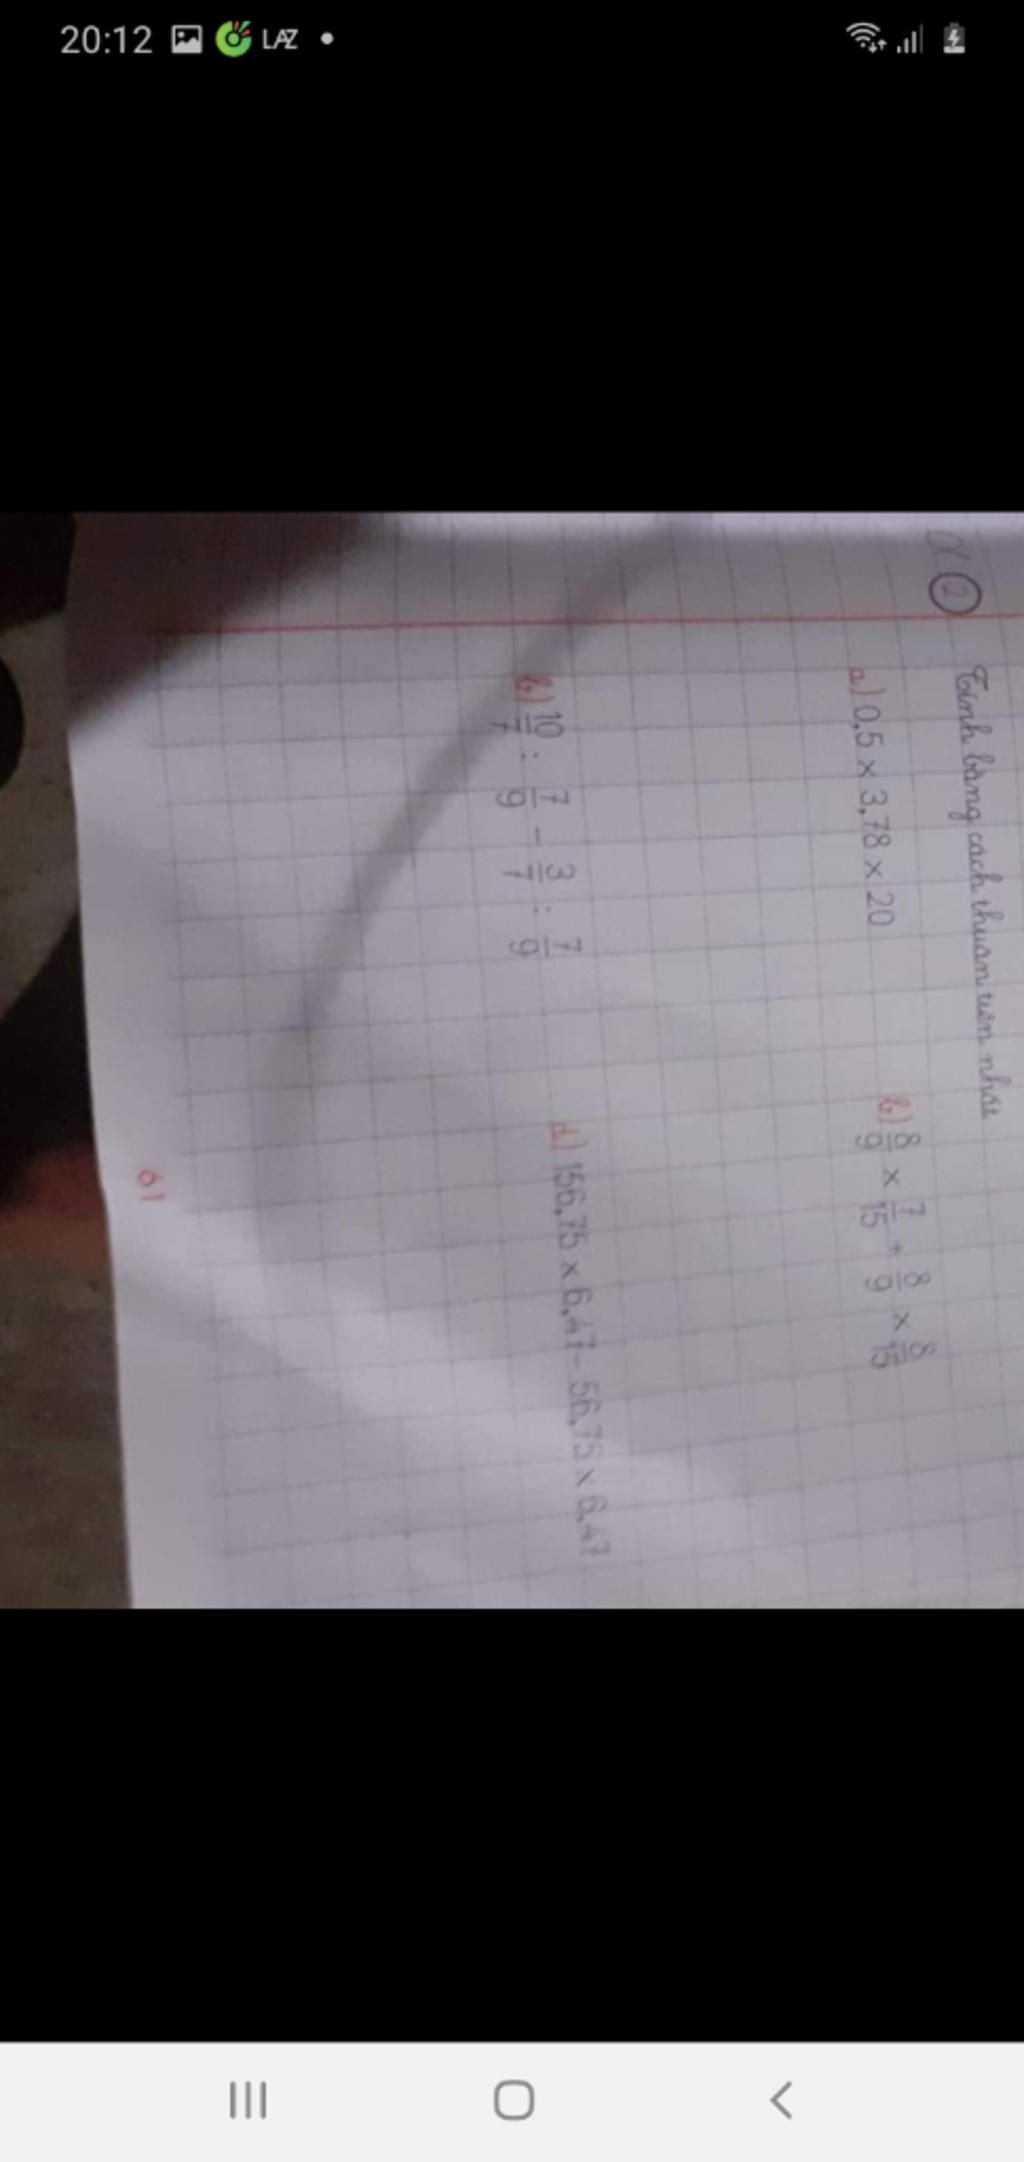 20:12 LAZ
2 Tính bằng cách thuận tiện nhất
a) 0,5 × 3,78 × 20
b) 8/9 × 7/15 + 8/9 × 8/15
b) 10/7 : 7/9 - 3/7 : 7/9
d) 156,75 × 6,47 - 56,75 × 6,47
61